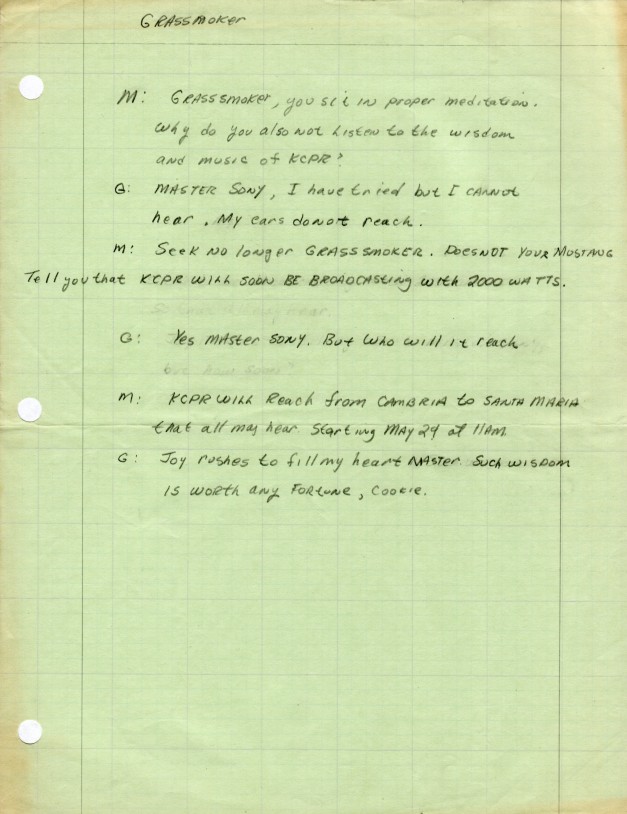 GRASSMOKER
M: GRASSSMOKER, you sit in proper meditation.
Why do you also not Listen to the wisdom
and music of KCPR?
G: MASTER SONY, I have tried but I CANNOT
hear. My ears do not reach.
M: Seek No longer GRASSSMOKER. DOES NOT YOUR MUSTANG
Tell you that KCPR WILL SOON BE BROADCASTING with 2000 WATTS.
G: Yes MASTER SONY. But Who will it reach
M: KCPR WILL Reach from CAMBRIA to SANTA MARIA
that all may hear Starting MAY 29 at 11AM
G: Joy rushes to fill my heart MASTER. Such WISDOM
IS WORTH ANY FORTUNE, COOKIE.